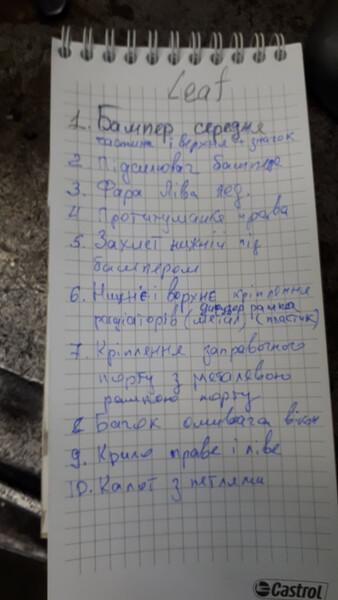 Leaf
1. Бампер середня
частина і верхня + значок
2 Підсилювач бампера
3. Фара ліва
4 Протитуманка права
5. Захист нижній під
бампером
6. Нижнє і верхнє кріплення
дифузор рамка
радіаторів (метал) (пластик)
7. Кріплення заправочного
порту з металевою
рамкою порту
8 Бачок омивача вікон
9. Крило праве і ліве
10. Капот з петлями
Castrol